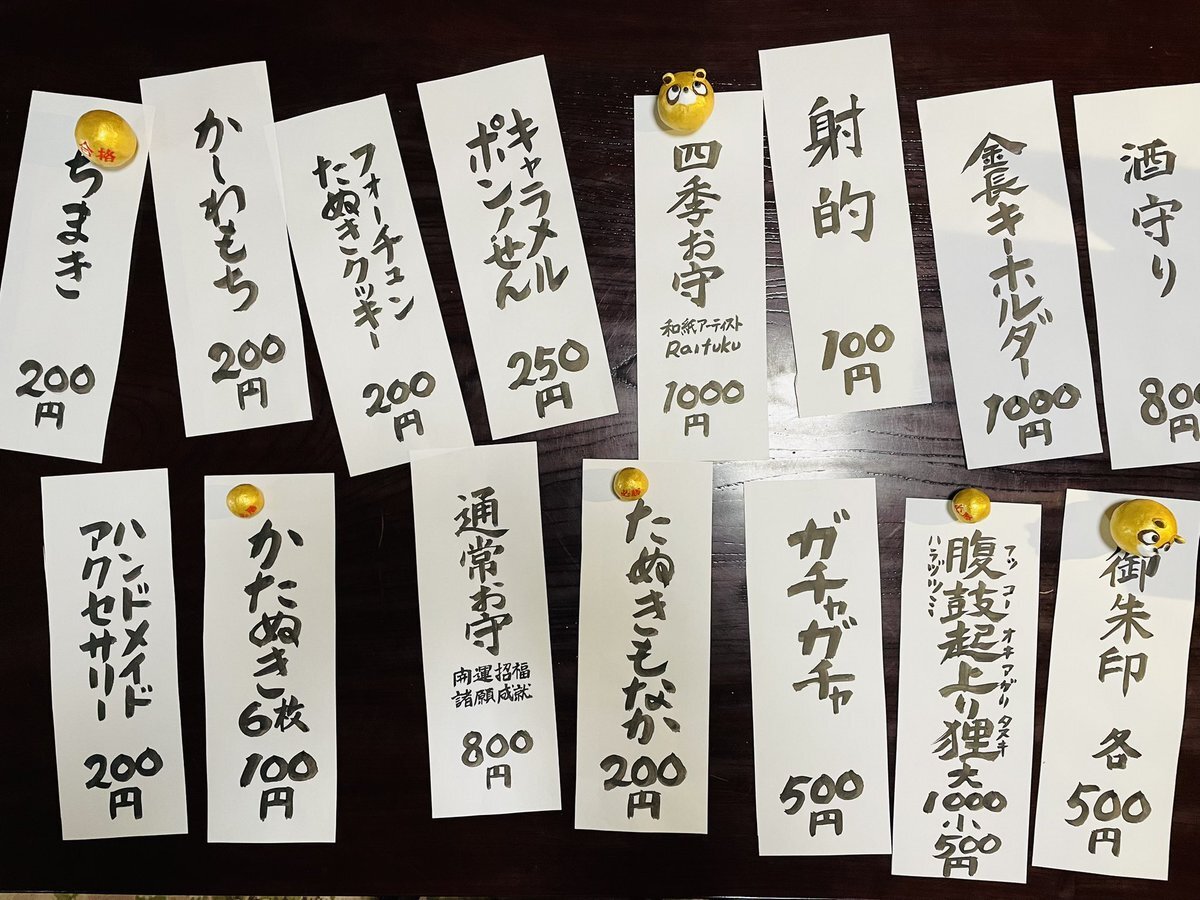 合格
ちまき
200
円
かーわもち
200
円
フォーチュン
たぬきクッキー
200
円
キャラメル
ポンせん
250
円
四季お守
和紙アーティスト
Raifuku
1000
円
射的
100
円
金長キーホルダー
1000
円
酒守り
800
円
ハンドメイド
アクセサリー
200
円
かたぬき6枚
100
円
通常お守
開運招福
諸願成就
800
円
たぬきもなか
200
円
ガチャガチャ
500
円
腹鼓起上り狸大
オキアガリタヌキ
ハラヅツミ
1000
小
500
円
御朱印 各
500
円